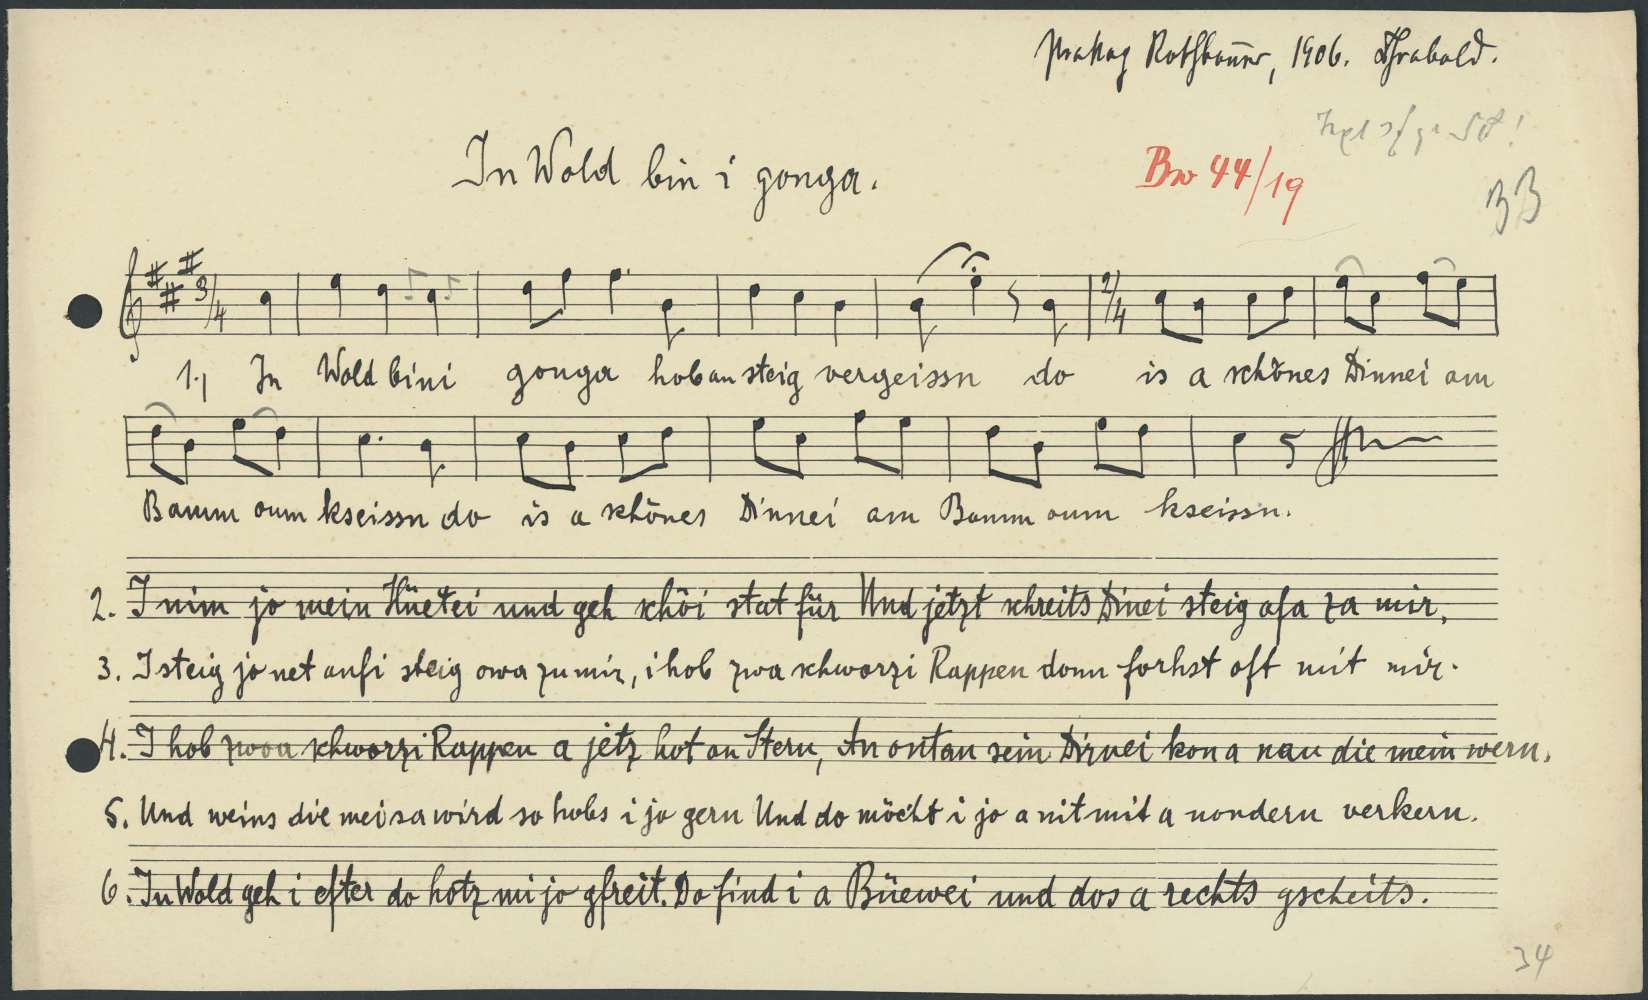 Rothbauer, 1906. Thrabold.
In Wold bin i gonga.
Bw 44/19
33
3/4 2/4
1.) In Wold bin i gonga hob an steig vergeissn do is a schönes Dinnei am
Bamm oum kseissn do is a schönes Dinnei am Bamm oum kseissn.
2. I nim jo mein Hüetei und geh schöi stat für Und jetzt schreits Dinei steig afa za mir.
3. I steig jo net aufi steig owa zu mir, i hob zwa schworzi Rappen donn forhst oft mit mir.
4. I hob zwoa schworzi Rappen a jetz hot an Stern, An ontan sein Dirnei kon a nau die mein wern.
5. Und weins die mei sa wird so hobs i jo gern Und do möcht i jo a nit mit a nondern verkern.
6. In Wold geh i efter do hotz mi jo gfreit. Do find i a Büewei und dos a rechts gscheits.
34